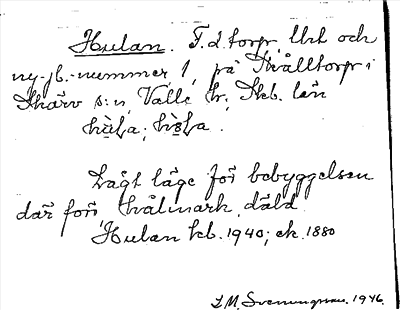 Hulan. F.d. torp, lht och
ny-jb.-nummer 1, på Kvålltorp i
Skärv s:n, Valle hr, Skb. län
hùla; hùla.
Lågt läge för bebyggelsen
där förr kvålmark, däld
Hulan kb. 1940; ek. 1880
L. M. Svenungsson. 1946.